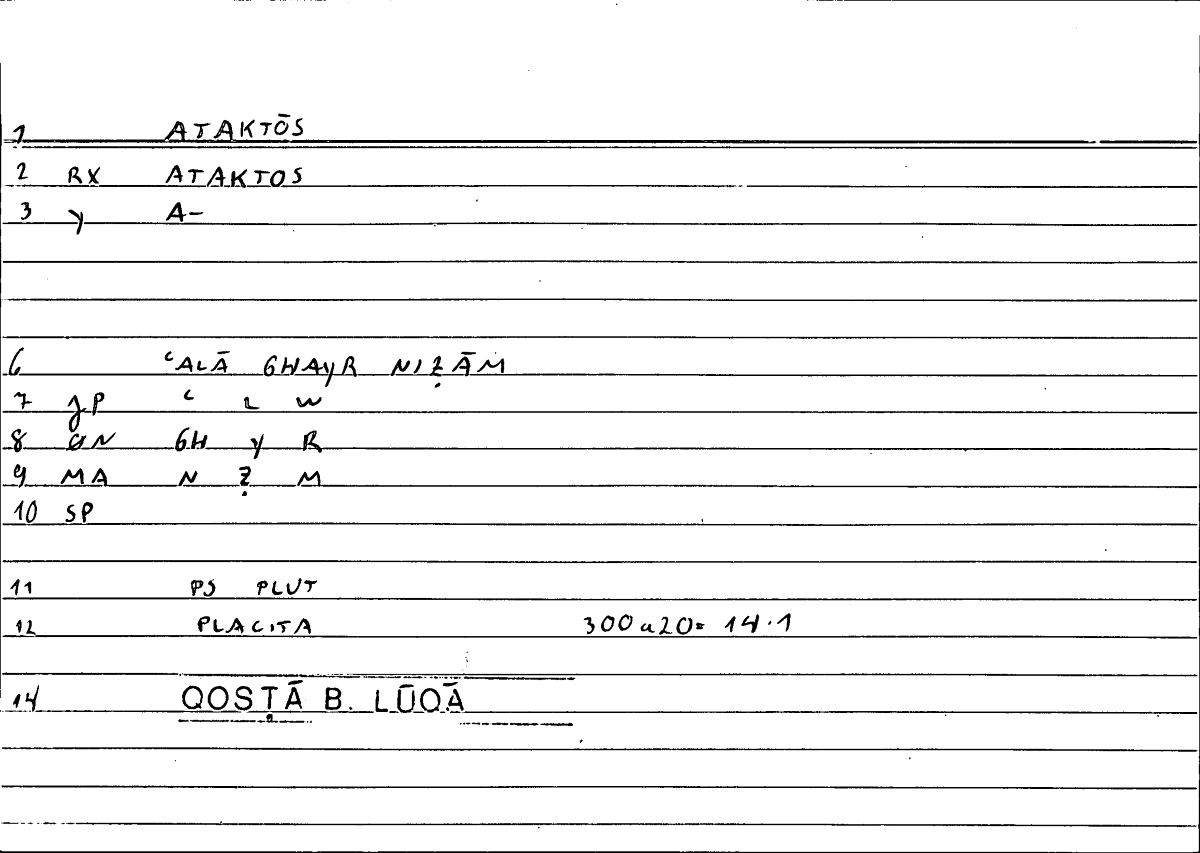 1 ATAKTŌS
2 RX ATAKTOS
3 y A-
6 ʿALĀ GHAYR NIẒĀM
7 JP ʿ L W
8 GN GH y R
9 MA N Ẓ M
10 SP
11 PS PLUT
12 PLACITA 300a20= 14.1
14 QOSṬĀ B. LŪQĀ